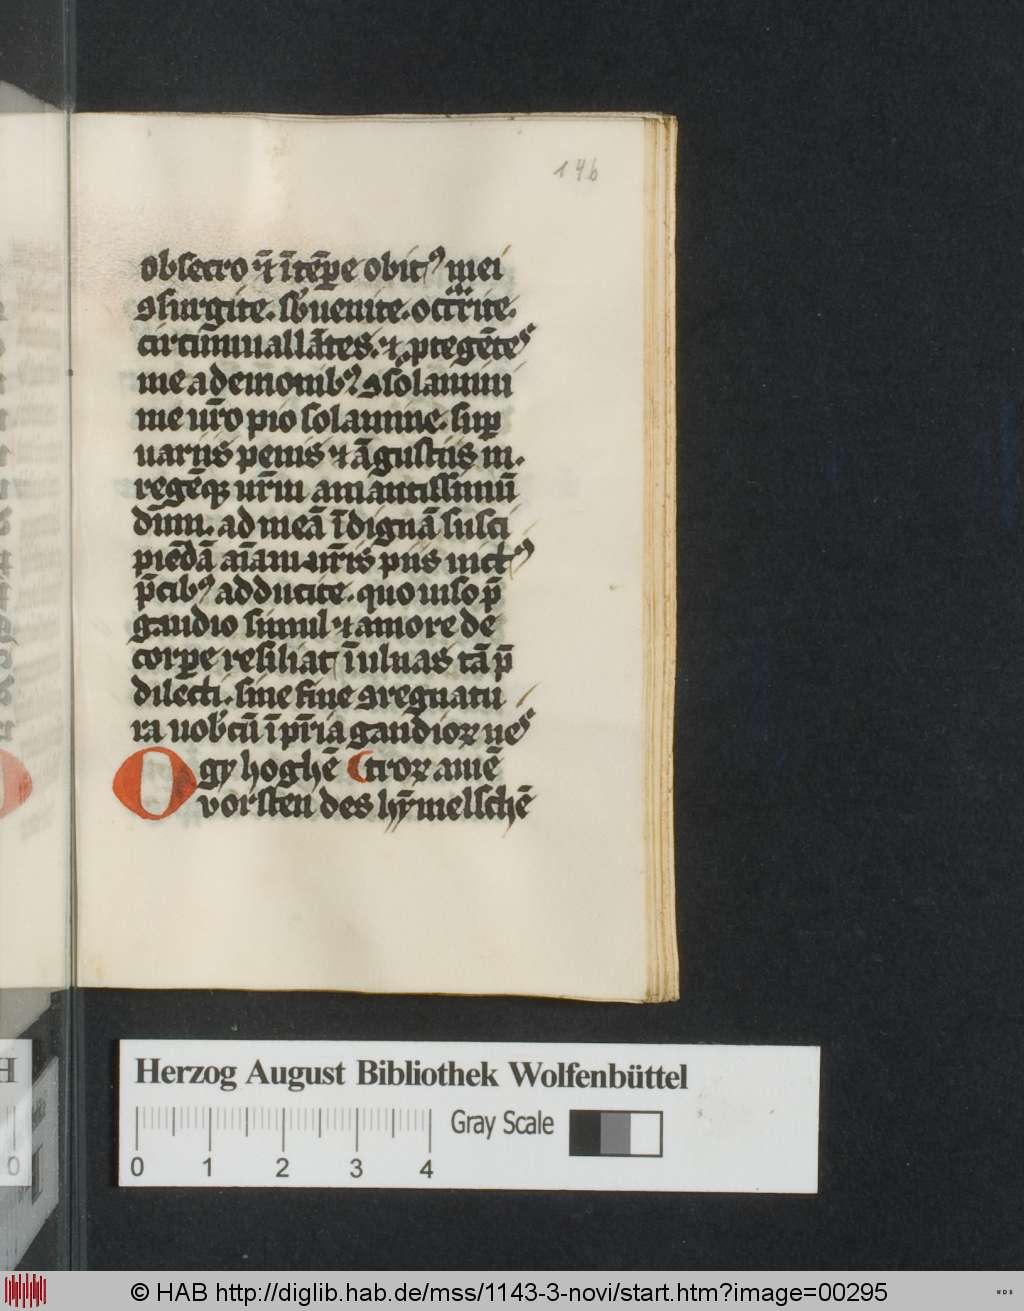 146
obsecro ⁊ ī tēꝑe obitꝰ mei
ꝯsurgite. sb̄uenite. occ̄rite.
circūuallātes. ⁊ ꝓtegētes
me a demonibꝰ ꝯsolamini
me ur̄o pio solamine. suꝑ
uariis penis ⁊ āgustiis m.
regēqꝫ ur̄m amantissimū
dn̄m. ad meā īdignā susci
piēdā aīam ur̄is piis
p̄cibꝰ adducite. quo uiso p̄
gaudio simul ⁊ amore de
corꝑe resiliat ī ulnas tā p̄
dilecti. sine fine ꝯregnatu
ra uob̄cū ī pr̄ia gaudioꝝ ues
troꝝ amē
O gy hoghē
vorsten des hȳmelschē
Herzog August Bibliothek Wolfenbüttel
Gray Scale
0 1 2 3 4
© HAB http://diglib.hab.de/mss/1143-3-novi/start.htm?image=00295